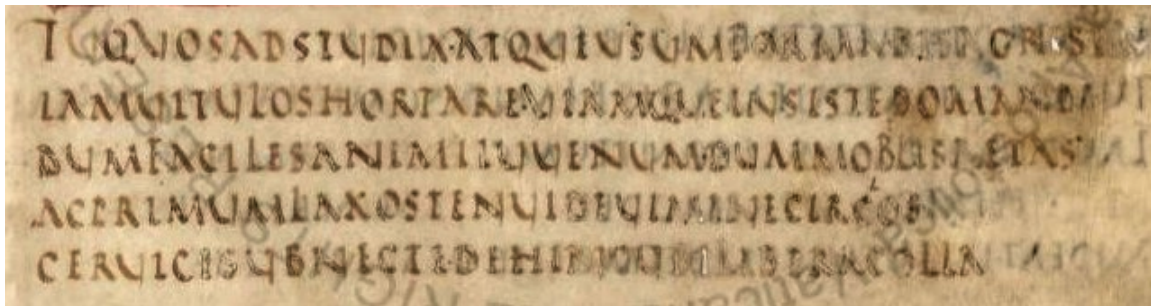 TU QUOSADSTUDIA·ATQUEUSUMFORMABIS AGRESTEM
IAMUITULOSHORTAREUIAMQUEINSISTEDOMANDI
DUMFACILESANIMIIUUENUMDUMMOBILISAETAS
ACPRIMUMLAXOSTENUIDEUIMINECIRCLOS
CERUICISUBNECTEDEHINCUBILIBERACOLLA